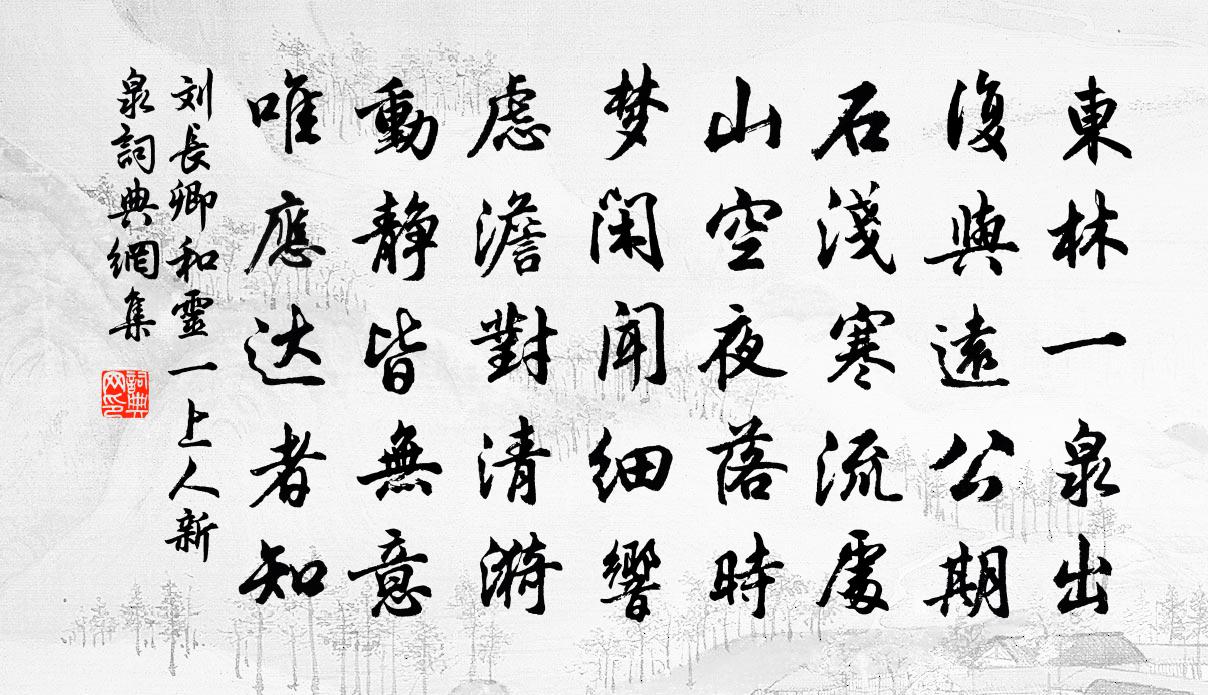 東林一泉出
復與遠公期
石淺寒流處
山空夜落時
梦闲闻细響
慮澹對清漪
動静皆無意
唯應达者知
刘長卿和靈一上人新
泉詞典網集
詞典网印